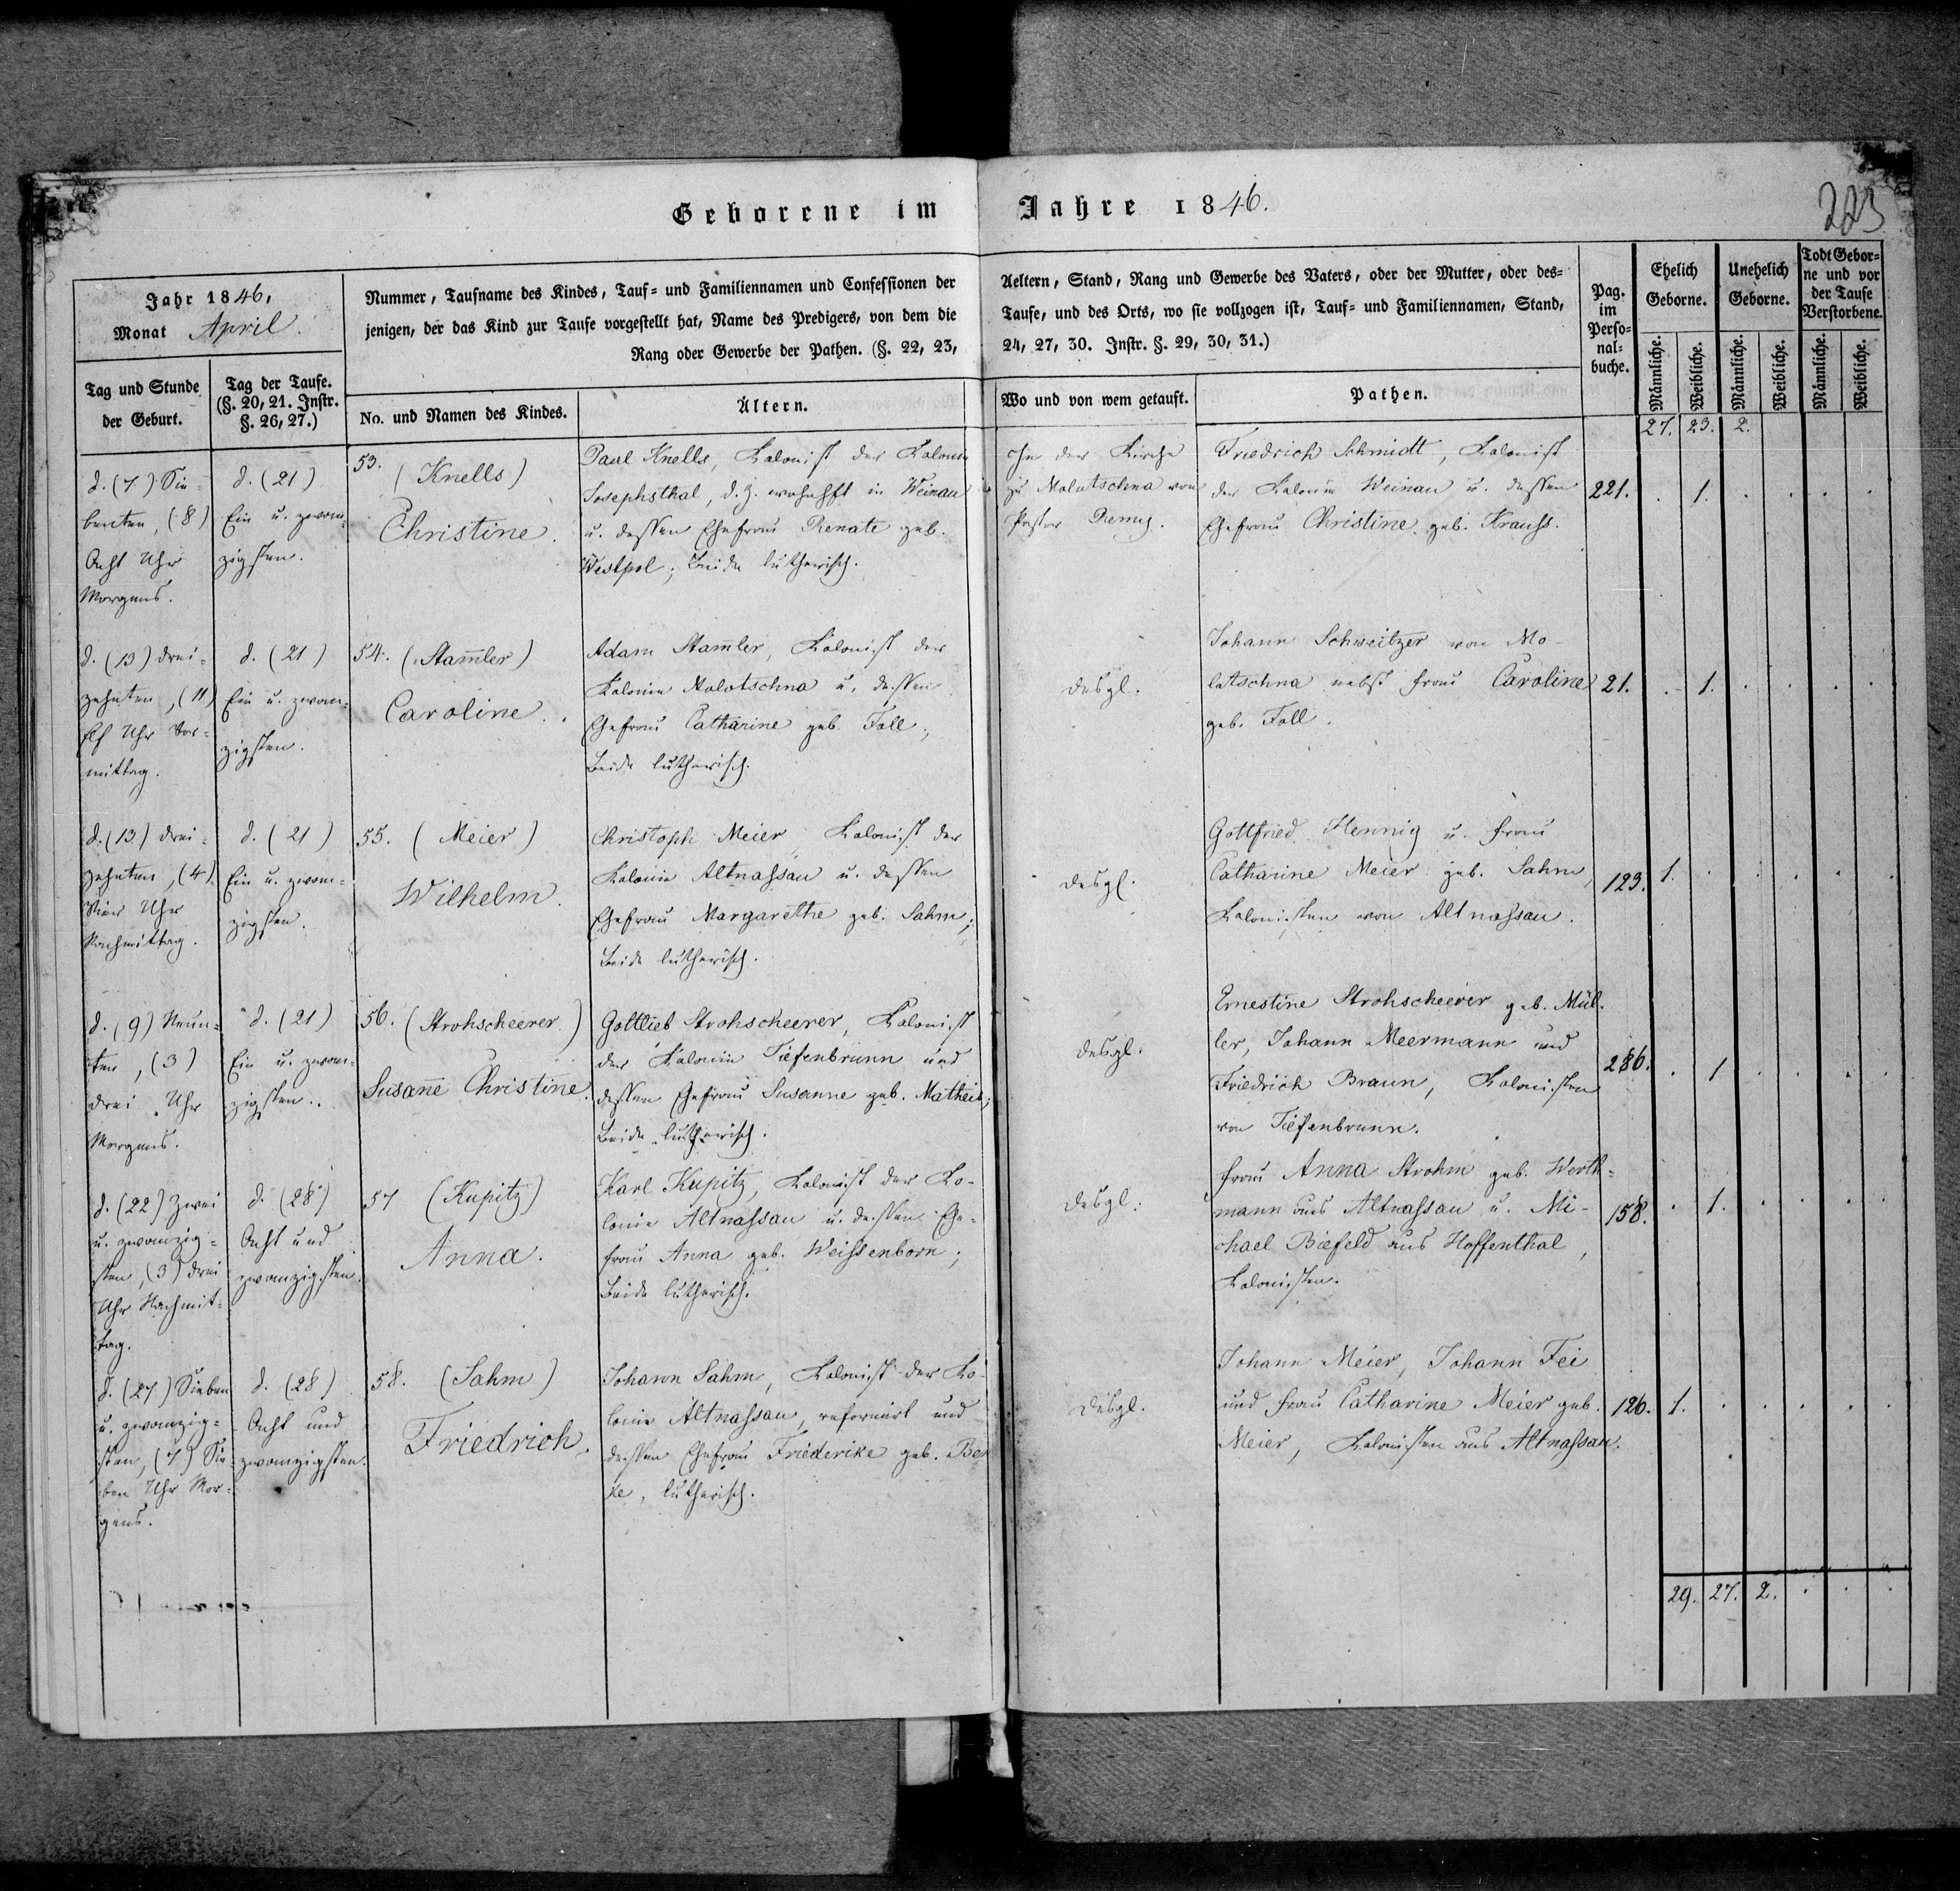 Geborene im Jahre 1846.
223
Jahr 1846,
Monat April.
Nummer, Taufname des Kindes, Tauf- und Familiennamen und Confessionen der
jenigen, der das Kind zur Taufe vorgestellt hat, Name des Predigers, von dem die
Rang oder Gewerbe der Pathen. (§. 22, 23,
Aeltern, Stand, Rang und Gewerbe des Vaters, oder der Mutter, oder des-
Taufe, und des Orts, wo sie vollzogen ist, Tauf- und Familiennamen, Stand,
24, 27, 30. Instr. §. 29, 30, 31.)
Pag.
im
Perso-
nal-
buche.
Ehelich
Geborne.
Unehelich
Geborne.
Todt Gebor-
ne und vor
der Taufe
Verstorbene.
Männliche.
Weibliche.
Männliche.
Weibliche.
Männliche.
Weibliche.
Tag und Stunde
der Geburt.
Tag der Taufe.
(§. 20, 21. Instr.
§. 26, 27.)
No. und Namen des Kindes.
Ältern.
Wo und von wem getauft.
Pathen.
27. 23. 2.
d. (7) Sie-
benten, (8)
Acht Uhr
Morgens.
d. (21)
Ein u. zwan-
zigsten.
53. (Knells)
Christine.
Paul Knells, Kolonist der Kolonie
Josephsthal, d. Z. wohnhft in Weinau
u. dessen Ehefrau Renate geb.
Westpol; beide lutherisch.
In der Kirche
zu Molotschna von
Pastor Remy.
Friedrich Schmidt, Kolonist
der Kolonie Weinau u. dessen
Ehefrau Christine geb. Krauss.
221. . 1. . . . .
d. (13) drei-
zehnten, (11)
Elf Uhr Vor-
mittag.
d. (21)
Ein u. zwan-
zigsten.
54. (Stam̄ler)
Caroline.
Adam Stam̄ler, Kolonist der
Kolonie Molotschna u. dessen
Ehefrau Catharine geb. Foll;
Beide lutherisch.
desgl.
Johann Schweitzer von Mo-
lotschna nebst Frau Caroline
geb. Foll.
21. . 1. . . . .
d. (13) drei-
zehnten, (4)
Vier Uhr
Nachmittag.
d. (21)
Ein u. zwan-
zigsten.
55. (Meier)
Wilhelm.
Christoph Meier, Kolonist der
Kolonie Altnassau u. dessen
Ehefrau Margarethe geb. Sahm;
Beide lutherisch.
desgl.
Gottfried Hennig u. Frau
Catharine Meier geb. Sahm,
Kolonisten von Altnassau.
123. 1. . . . . .
d. (9) Neun-
ten, (3)
drei Uhr
Morgens.
d. (21)
Ein u. zwan-
zigsten.
56. (Strohscheerer)
Susan̄e Christine.
Gottlieb Strohscheerer, Kolonist
der Kolonie Tiefenbrunn und
dessen Ehefrau Susanne geb.
Beide lutherisch.
desgl.
Ernestine Strohscheerer geb. Mül-
ler, Johann Meermann und
Friedrich Braun, Kolonisten
von Tiefenbrunn.
286. . 1 . . . .
d. (22) Zwei
u. zwanzig-
sten, (3) drei
Uhr Nachmit-
tag.
d. (28)
Acht und
zwanzigsten.
57 (Kupitz)
Anna.
Karl Kupitz, Kolonist der Ko-
lonie Altnassau u. dessen Ehe-
frau Anna geb. Weissenborn;
Beide lutherisch.
desgl.
Frau Anna Strohm geb. Werth-
mann aus Altnassau u. Mi-
chael Biefeld aus Hoffenthal,
Kolonisten.
158. . 1. . . . .
d. (27) Sieben
u. zwanzig-
sten, (7) Sie-
ben Uhr Mor-
gens.
d. (28)
Acht und
zwanzigsten.
58. (Sahm)
Friedrich.
Johann Sahm, Kolonist der Ko-
lonie Altnassau, reformirt und
dessen Ehefrau Friederike geb.
lutherisch.
desgl.
Johann Meier, Johann Fei
und Frau Catharine Meier geb.
Meier, Kolonisten aus Altnassau.
126. 1. . . . . .
29. 27. 2. . . .